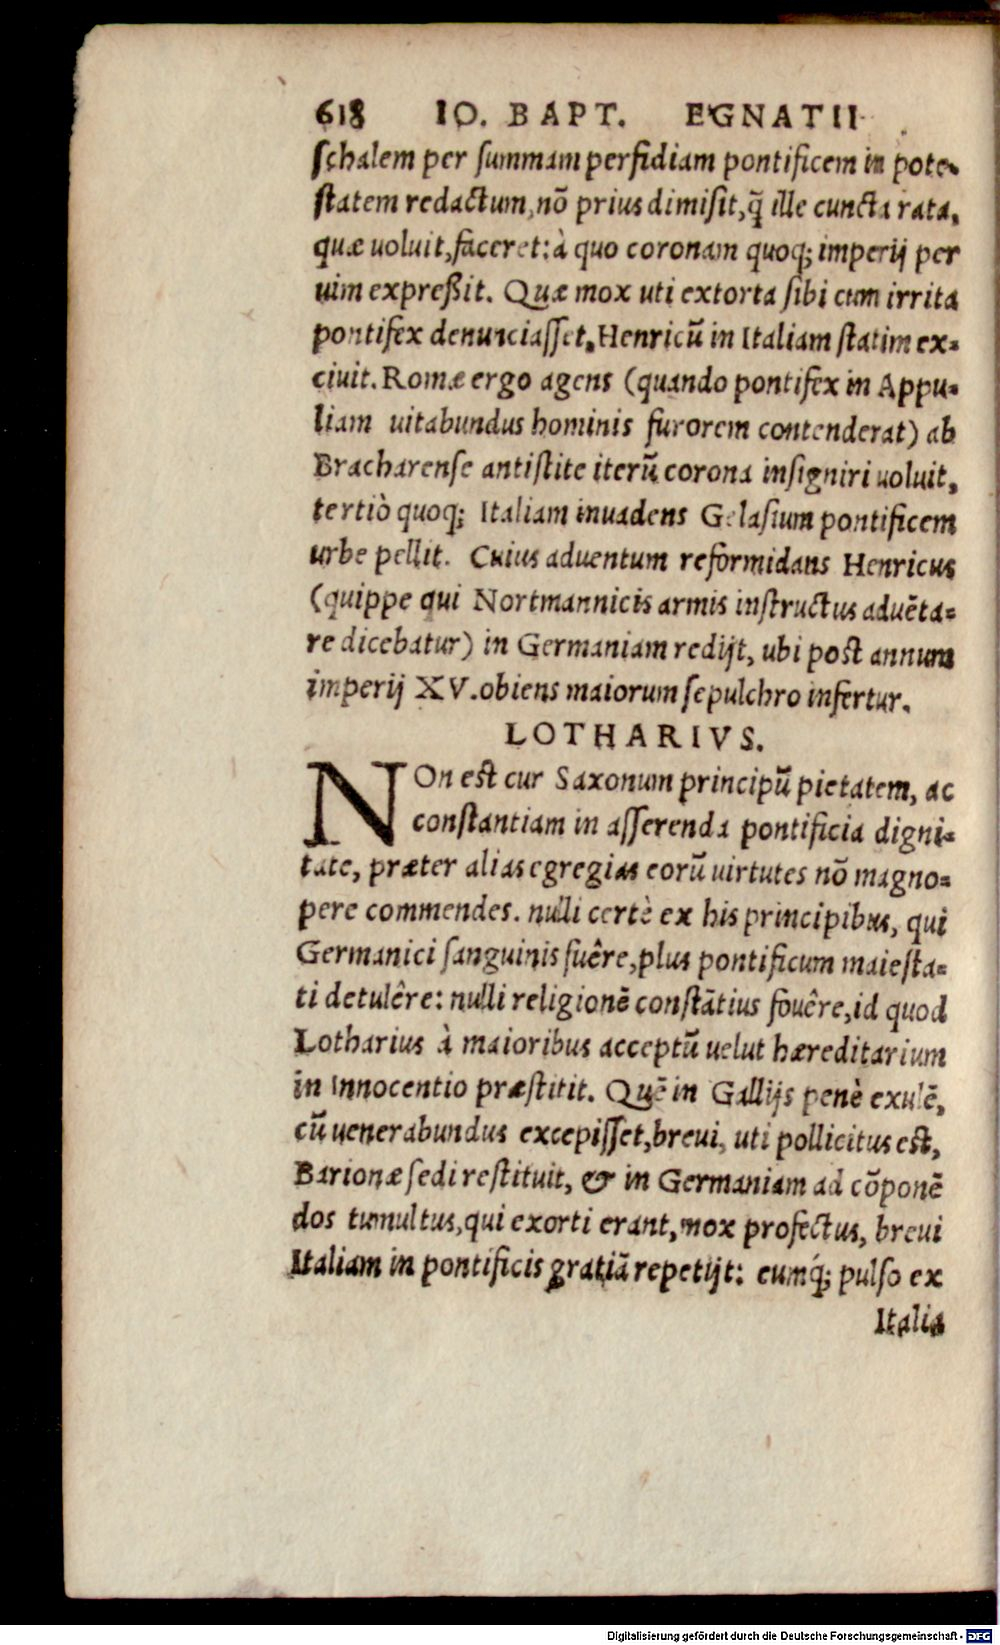 618 IO. BAPT. EGNATII
ſchalem per ſummam perfidiam pontificem in pote-
ſtatem redactum, nō prius dimiſit, q̄ ille cuncta rata,
quæ uoluit, faceret: à quo coronam quoq; imperij per
uim expreßit. Quæ mox uti extorta ſibi cum irrita
pontifex denunciaſſet, Henricū in Italiam ſtatim ex=
ciuit. Romæ ergo agens (quando pontifex in Appu=
liam uitabundus hominis furorem contenderat) ab
Bracharenſe antiſtite iterū corona inſigniri uoluit,
tertiò quoq; Italiam inuadens Gelaſium pontificem
urbe pellit. Cuius aduentum reformidans Henricus
(quippe qui Nortmannicis armis inſtructus aduēta=
re dicebatur) in Germaniam redijt, ubi post annum
imperij XV. obiens maiorum ſepulchro infertur.
LOTHARIVS.
NOn est cur Saxonum principū pietatem, ac
conſtantiam in aſſerenda pontificia digni=
tate, præter alias egregias eorū uirtutes nō magno=
pere commendes. nulli certè ex his principibus, qui
Germanici ſanguinis fuêre, plus pontificum maieſta=
ti detulêre: nulli religionē conſtātius fouêre, id quod
Lotharius à maioribus acceptū uelut hæreditarium
in Innocentio præſtitit. Quē in Gallijs penè exulē,
cū uenerabundus excepiſſet, breui, uti pollicitus est,
Barionæ ſedi reſtituit, & in Germaniam ad cōponē
dos tumultus, qui exorti erant, mox profectus, breui
Italiam in pontificis gratiā repetijt: eumq́; pulſo ex
Italia
Digitalisierung gefördert durch die Deutsche Forschungsgemeinschaft - DFG